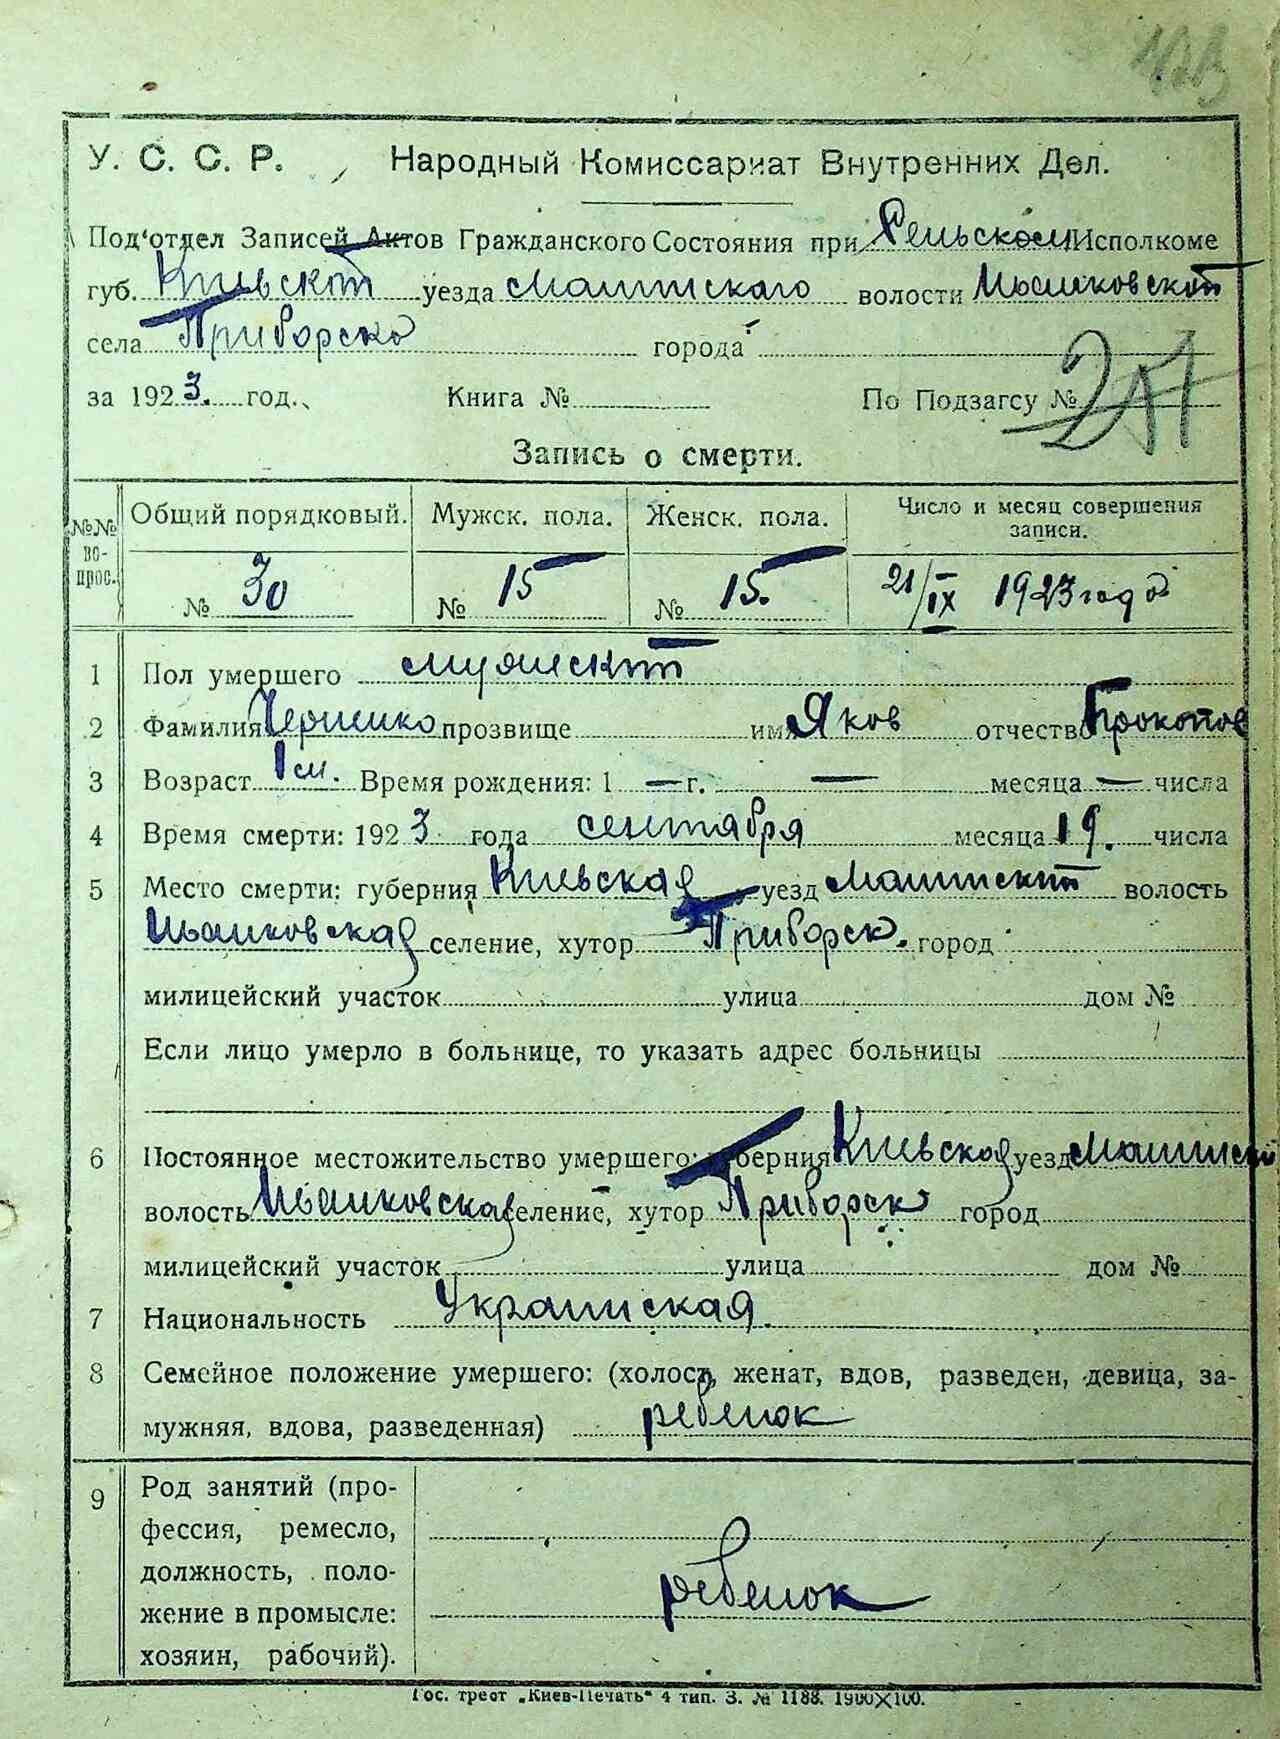 У. С. С. Р. Народный Комиссариат Внутренних Дел.
Под'отдел Записей Актов Гражданского Состояния при Сельском Исполкоме
губ. Киевской уезда волости
села Приборска города
за 1923. год. Книга № По Подзагсу №
Запись о смерти.
№№ вопрос. Общий порядковый. Мужск. пола. Женск. пола. Число и месяц совершения записи.
№ 30 № 15 № 15. 21/IX 1923 года
1 Пол умершего мужской
2 Фамилия прозвище имя Яков отчество Прокопов
3 Возраст 1 м. Время рождения: 1 — г. — месяца — числа
4 Время смерти: 1923 года сентября месяца 19. числа
5 Место смерти: губерния Киевская уезд волость
селение, хутор Приборск. город
милицейский участок улица дом №
Если лицо умерло в больнице, то указать адрес больницы
6 Постоянное местожительство умершего: губерния Киевская уезд
волость селение, хутор Приборск город
милицейский участок улица дом №
7 Национальность Украинская.
8 Семейное положение умершего: (холост, женат, вдов, разведен, девица, за-
мужняя, вдова, разведенная) ребенок
9 Род занятий (про-
фессия, ремесло,
должность, поло-
жение в промысле:
хозяин, рабочий).
ребенок
Гос. трест „Киев-Печать" 4 тип. З. № 1188. 1900×100.